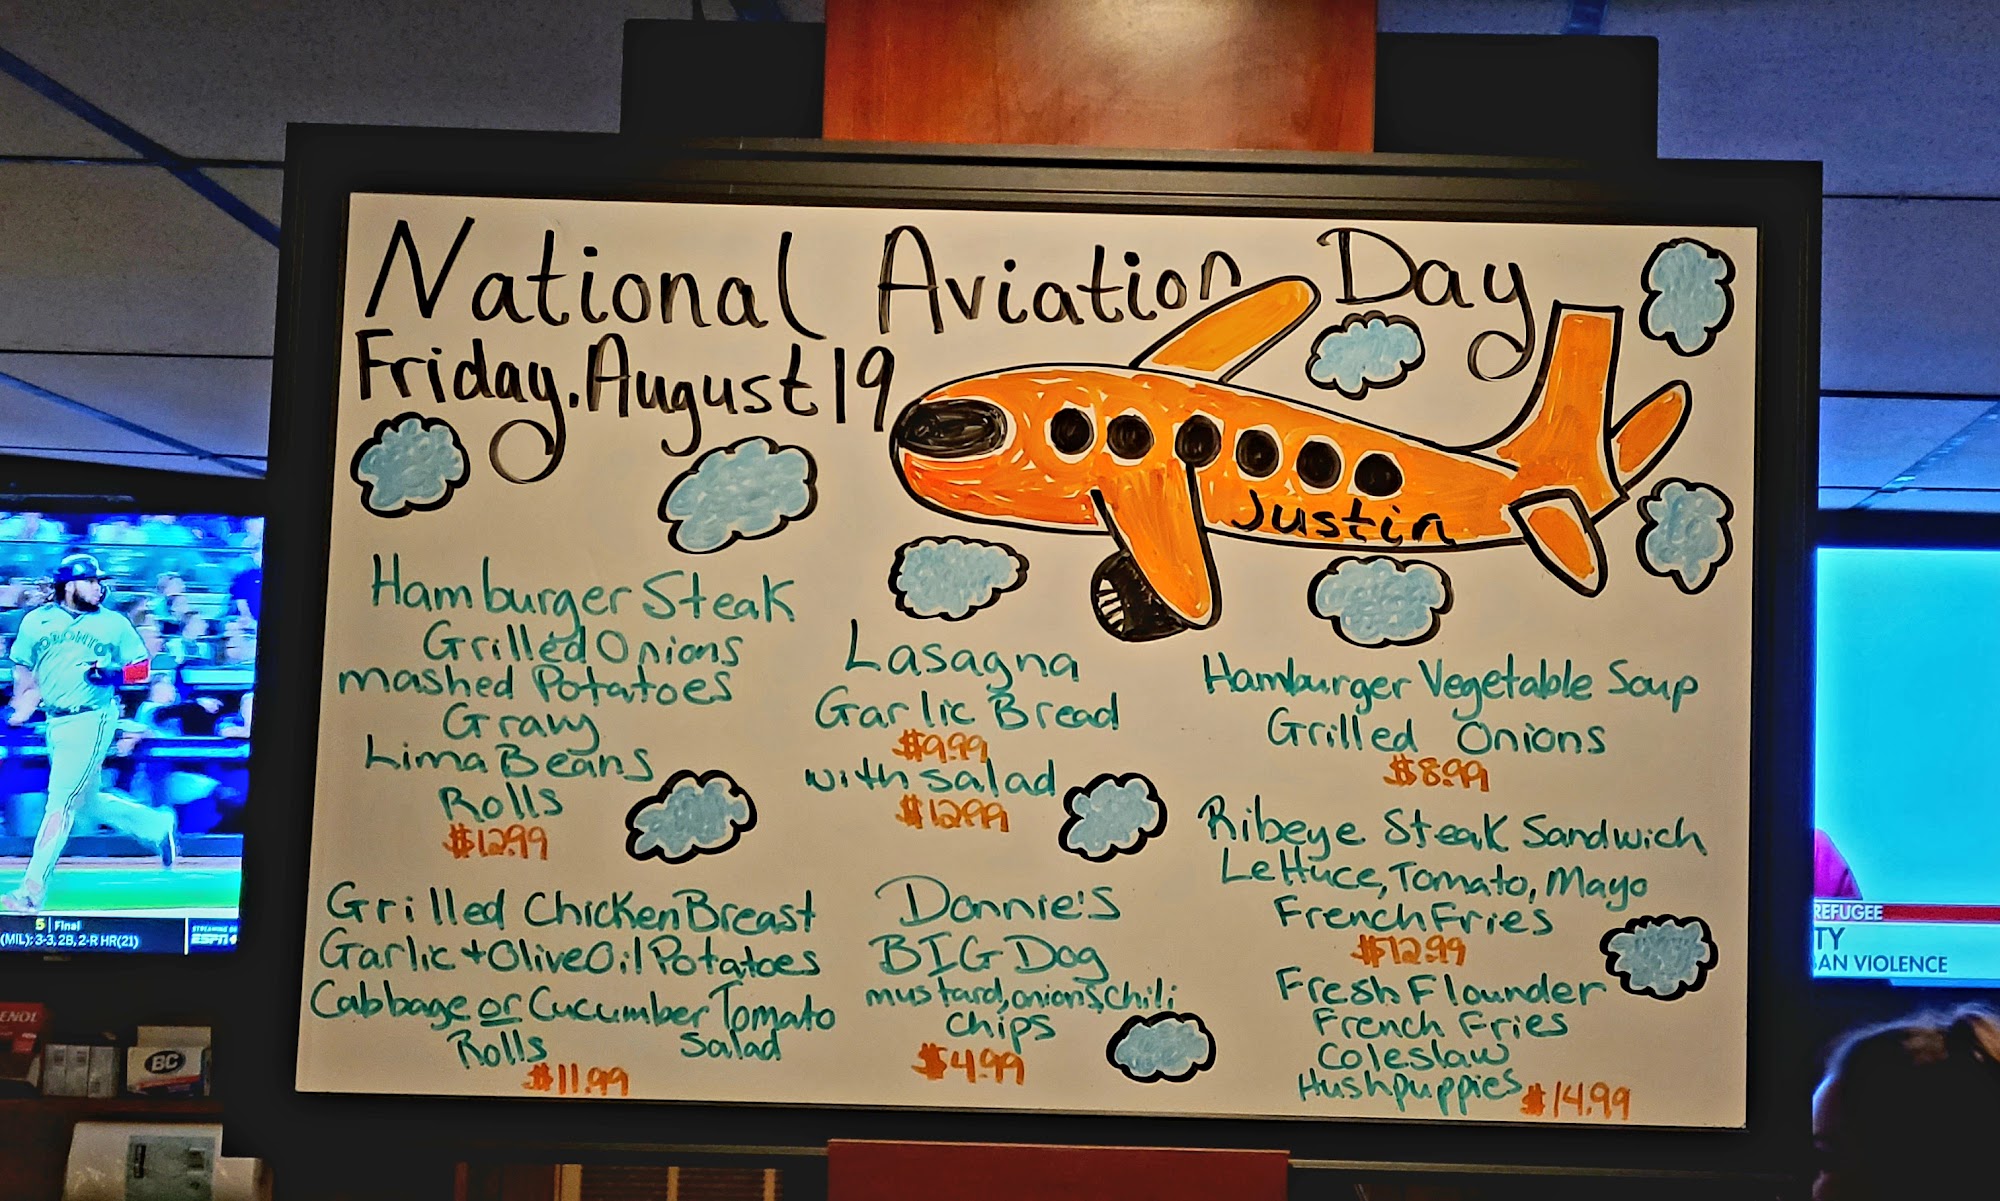 National Aviation Day
Friday. August 19
Justin
Hamburger Steak
Grilled Onions
mashed Potatoes
Gravy
Lima Beans
Rolls
$12.99
Grilled Chicken Breast
Garlic + Olive Oil Potatoes
Cabbage or Cucumber Tomato
Rolls Salad
$11.99
Lasagna
Garlic Bread
$9.99
with salad
$12.99
Donnie's
BIG Dog
mustard, onions, chili
chips
$4.99
Hamburger Vegetable Soup
Grilled Onions
$8.99
Ribeye Steak Sandwich
Lettuce, Tomato, Mayo
French Fries
$12.99
Fresh Flounder
French Fries
Coleslaw
Hushpuppies $14.99
TORONTO
5 Final
(MIL): 3-3, 2B, 2-R HR(21)
ESPN+
REFUGEE
TY
AN VIOLENCE
ENOL
BC